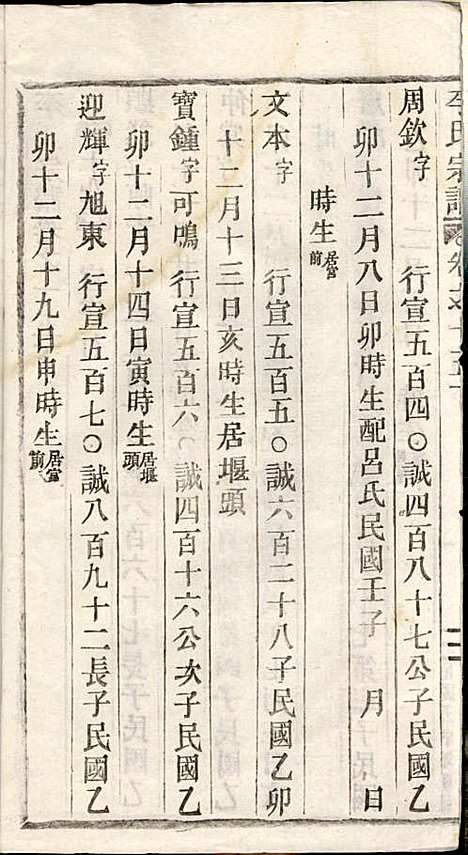 李氏宗譜 卷之十五
周欽字 行宣五百四〇誠四百八十七公子民國乙
卯十二月八日卯時生配呂氏民國壬子 月 日
時生居官前
文本字 行宣五百五〇誠六百二十八子民國乙卯
十二月十三日亥時生居堰頭
寶鍾字可鳴 行宣五百六〇誠四百十六公次子民國乙
卯十二月十四日寅時生居堰頭
迎輝字旭東 行宣五百七〇誠八百九十二長子民國乙
卯十二月十九日申時生居官前